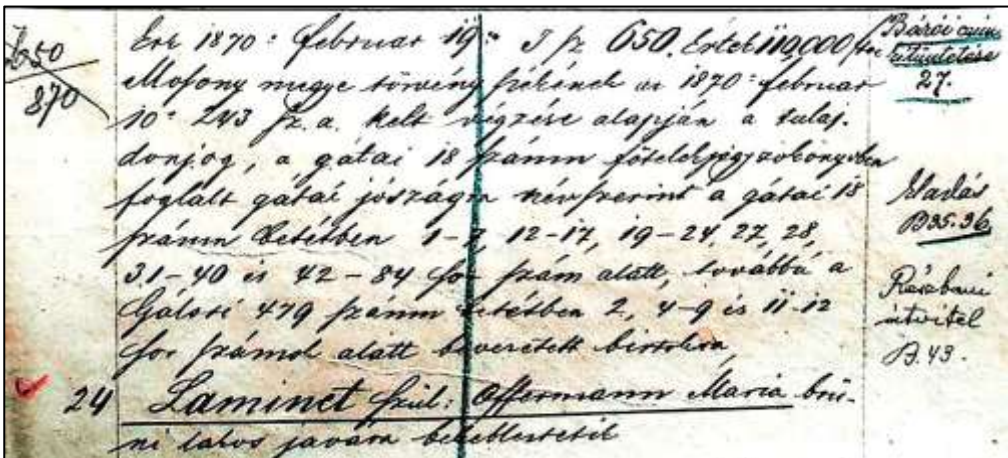 650
870
Érk 1870: februar 19: T sz. 650. Érték 110,000 for
Mosony megye törvény székének az 1870: februar
10: 243 sz. a. kelt végzése alapján a tulaj-
donjog, a gátai 18 számu főtelekjegyzőkönyvben
foglalt gátai jószágra névszerint a gátai 18
számu betétben 1-7, 12-17, 19-24, 27, 28,
31-40 és 42-84 sor szám alatt, továbbá a
Gálosi 479 számu betétben 2, 4-9 és 11-12
sor számok alatt bevezetett birtokra
24 Laminet szül: Offermann Maria brü-
ni lakos javára bekebleztetik
Bárói czim
kitüntetése
27.
Eladás
B35.36
Részbeni
átvitel
B.43.